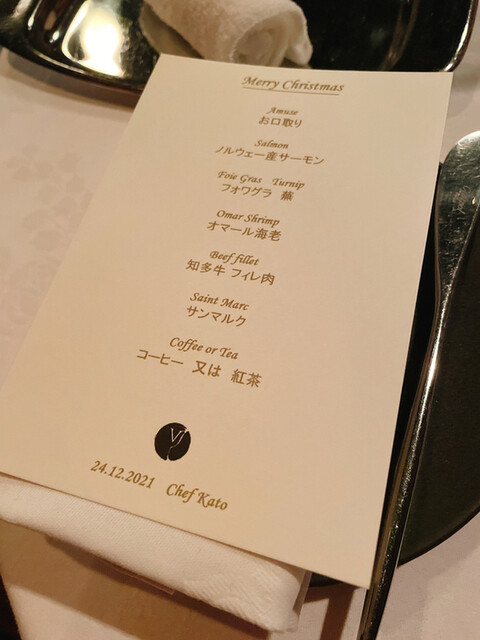 Merry Christmas
Amuse
お口取り
Salmon
ノルウェー産サーモン
Foie Gras Turnip
フォワグラ 蕪
Omar Shrimp
オマール海老
Beef fillet
知多牛 フィレ肉
Saint Marc
サンマルク
Coffee or Tea
コーヒー 又は 紅茶
Vj
24.12.2021 Chef Kato